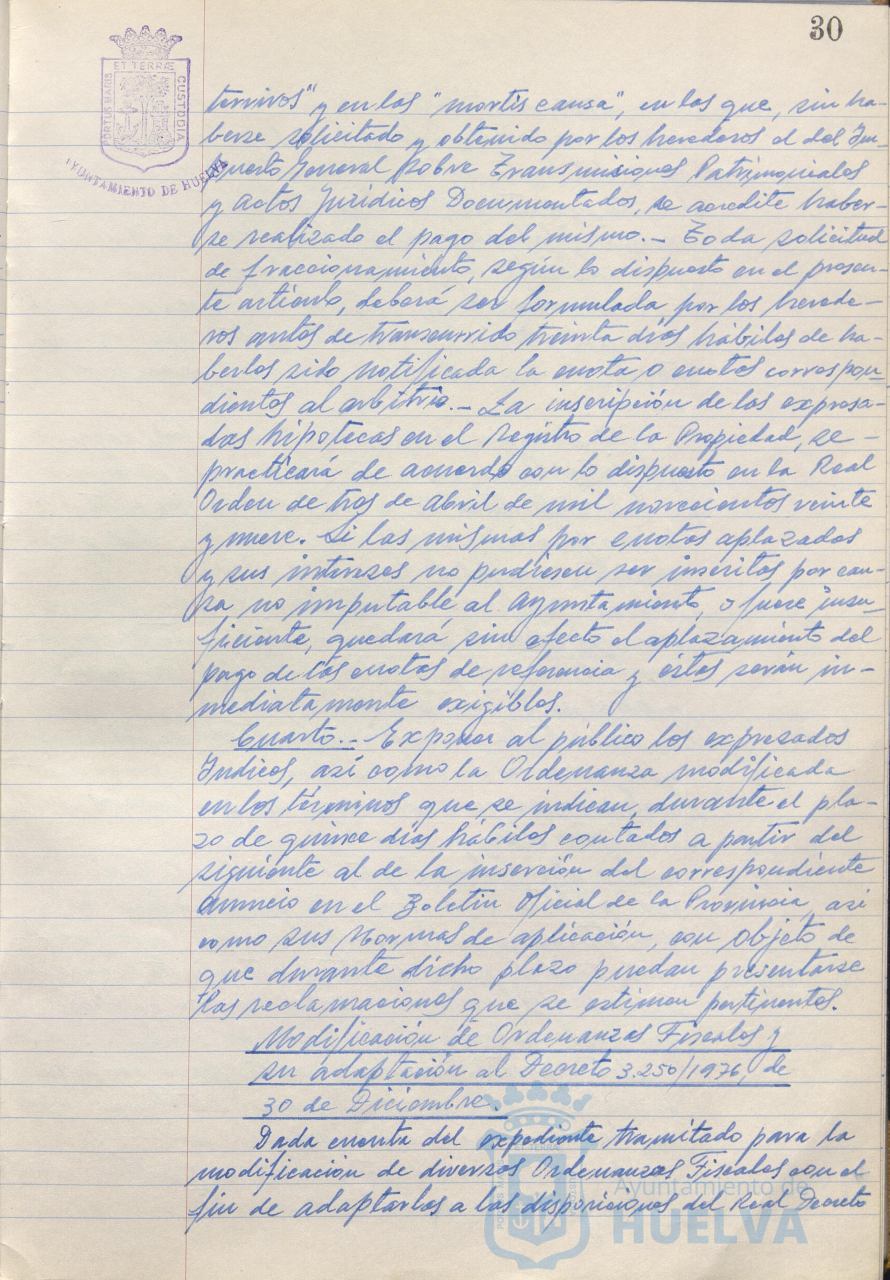 30
ET TERRÆ
PORTUS MARIS
CUSTODIA
AYUNTAMIENTO DE HUELVA
tervivos" y en las "mortis causa", en las que, sin ha-
berse solicitado y obtenido por los herederos el del Im-
puesto General sobre Transmisiones Patrimoniales
y Actos Jurídicos Documentados, se acredite haber-
se realizado el pago del mismo.- Toda solicitud
de fraccionamiento, según lo dispuesto en el presen-
te artículo, deberá ser formulada por los herede-
ros antes de transcurrido treinta días hábiles de ha-
berles sido notificada la cuota o cuotas correspon-
dientes al arbitrio.- La inscripción de las expresa-
das hipotecas en el Registro de la Propiedad, se-
practicará de acuerdo con lo dispuesto en la Real
Orden de tres de Abril de mil novecientos veinte
y nueve. Si las mismas por cuotas aplazadas
y sus intereses no pudiesen ser inscritas por cau-
sa no imputable al Ayuntamiento, o fuere insu-
ficiente, quedará sin efecto el aplazamiento del
pago de las cuotas de referencia y éstas serán in-
mediatamente exigibles.
Cuarto.- Exponer al público los expresados
Indices, así como la Ordenanza modificada
en los términos que se indican, durante el pla-
zo de quince días hábiles contados a partir del
siguiente al de la inserción del correspondiente
anuncio en el Boletín Oficial de la Provincia, así
como sus Normas de aplicación, con objeto de
que durante dicho plazo puedan presentarse
las reclamaciones que se estimen pertinentes.
Modificación de Ordenanzas Fiscales y
su adaptación al Decreto 3.250/1976, de
30 de Diciembre.
Dada cuenta del expediente tramitado para la
modificación de diversas Ordenanzas Fiscales con el
fin de adaptarlas a las disposiciones del Real Decreto
Ayuntamiento de
HUELVA